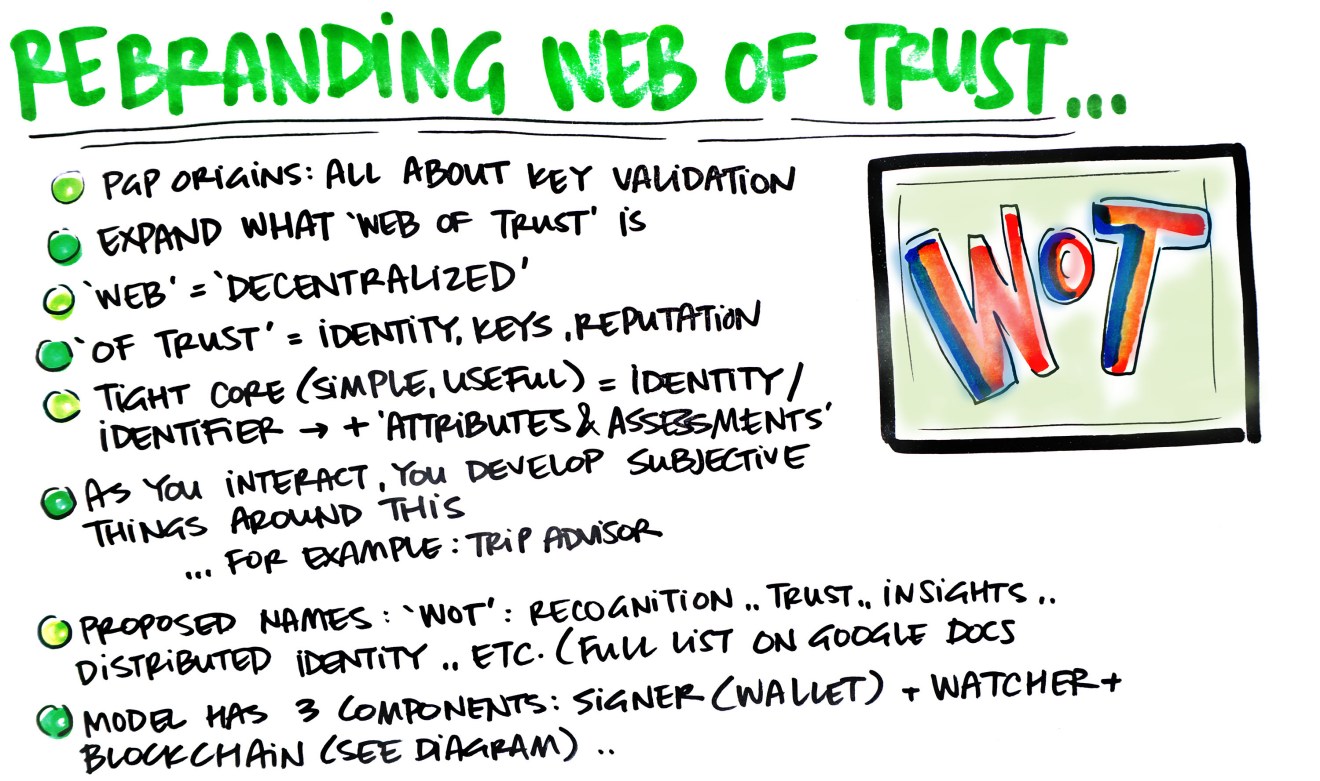 REBRANDING WEB OF TRUST...
PGP ORIGINS: ALL ABOUT KEY VALIDATION
EXPAND WHAT 'WEB OF TRUST' IS
'WEB' = 'DECENTRALIZED'
'OF TRUST' = IDENTITY, KEYS, REPUTATION
TIGHT CORE (SIMPLE, USEFUL) = IDENTITY/
IDENTIFIER → + 'ATTRIBUTES & ASSESSMENTS'
AS YOU INTERACT, YOU DEVELOP SUBJECTIVE
THINGS AROUND THIS
... FOR EXAMPLE: TRIP ADVISOR
PROPOSED NAMES: 'WOT': RECOGNITION .. TRUST.. INSIGHTS ..
DISTRIBUTED IDENTITY .. ETC. (FULL LIST ON GOOGLE DOCS
MODEL HAS 3 COMPONENTS: SIGNER (WALLET) + WATCHER +
BLOCKCHAIN (SEE DIAGRAM) ..
WOT